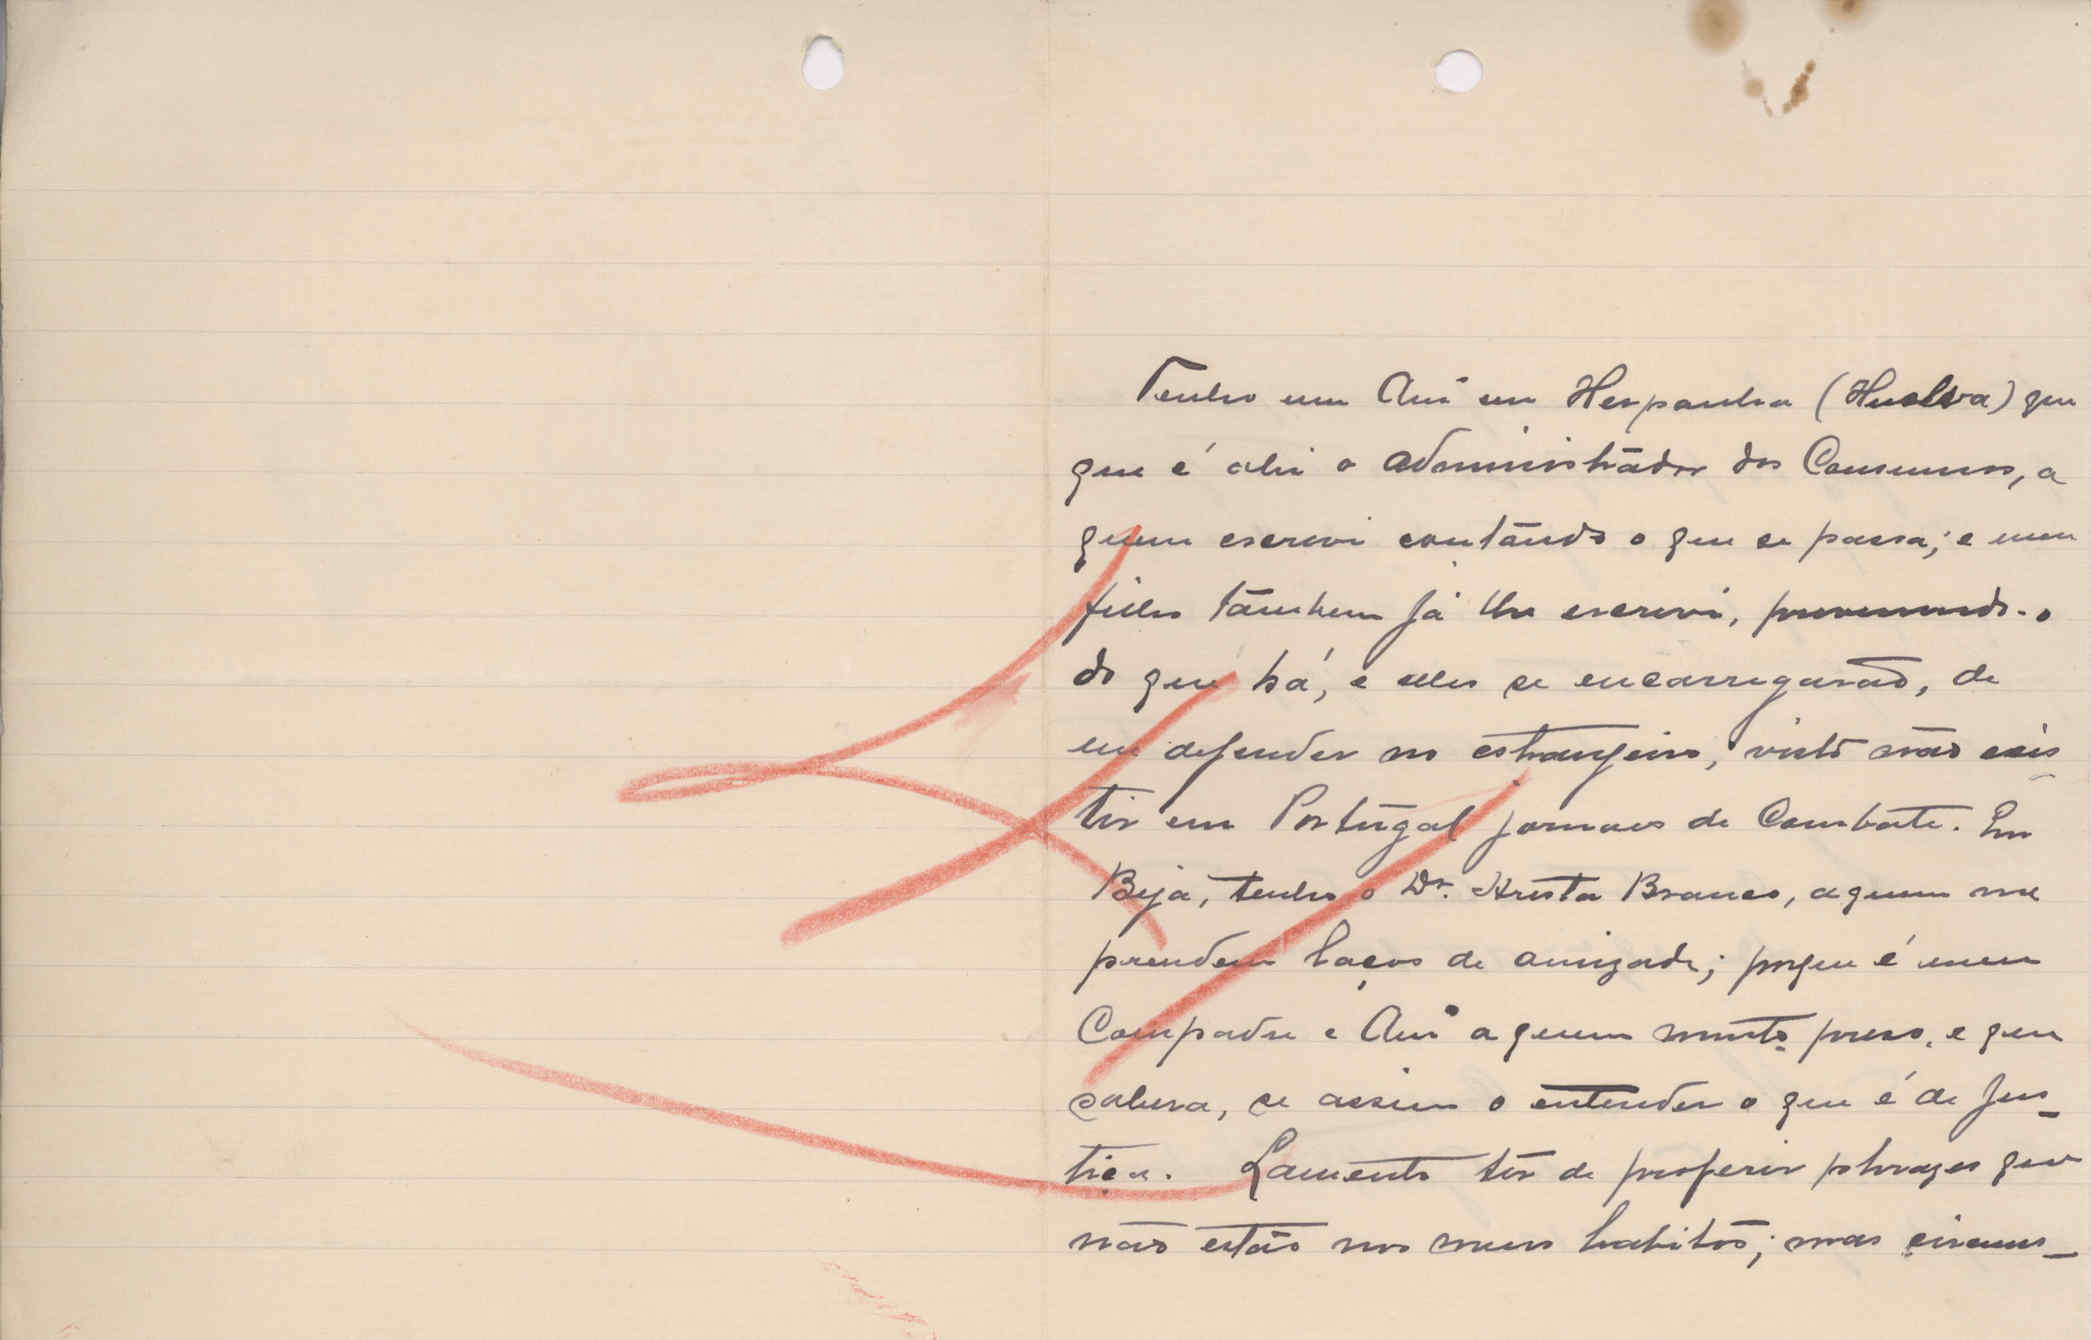 Tenho um Amº em Hespanha (Huelva) que
que é ahi o administrador dos Consumos, a
quem escrevi contando o que se passa; e meu
filho tambem já lhe escrevi, prevenindo-o
do que há, e elles se encarregarão, de
me defender no estrangeiro, visto não exis
tir em Portugal jornaes de Combate. Em
Beja, tenho o Dr. Aresta Branco, a quem me
prendem laços de amizade; porque é meu
Compadre e Amº a quem muito preso, e que
sabera, se assim o entender o que é de Jus_
tiça. Lamento têr de proferir phrazes que
não estão nos meus habitos; mas circuns_